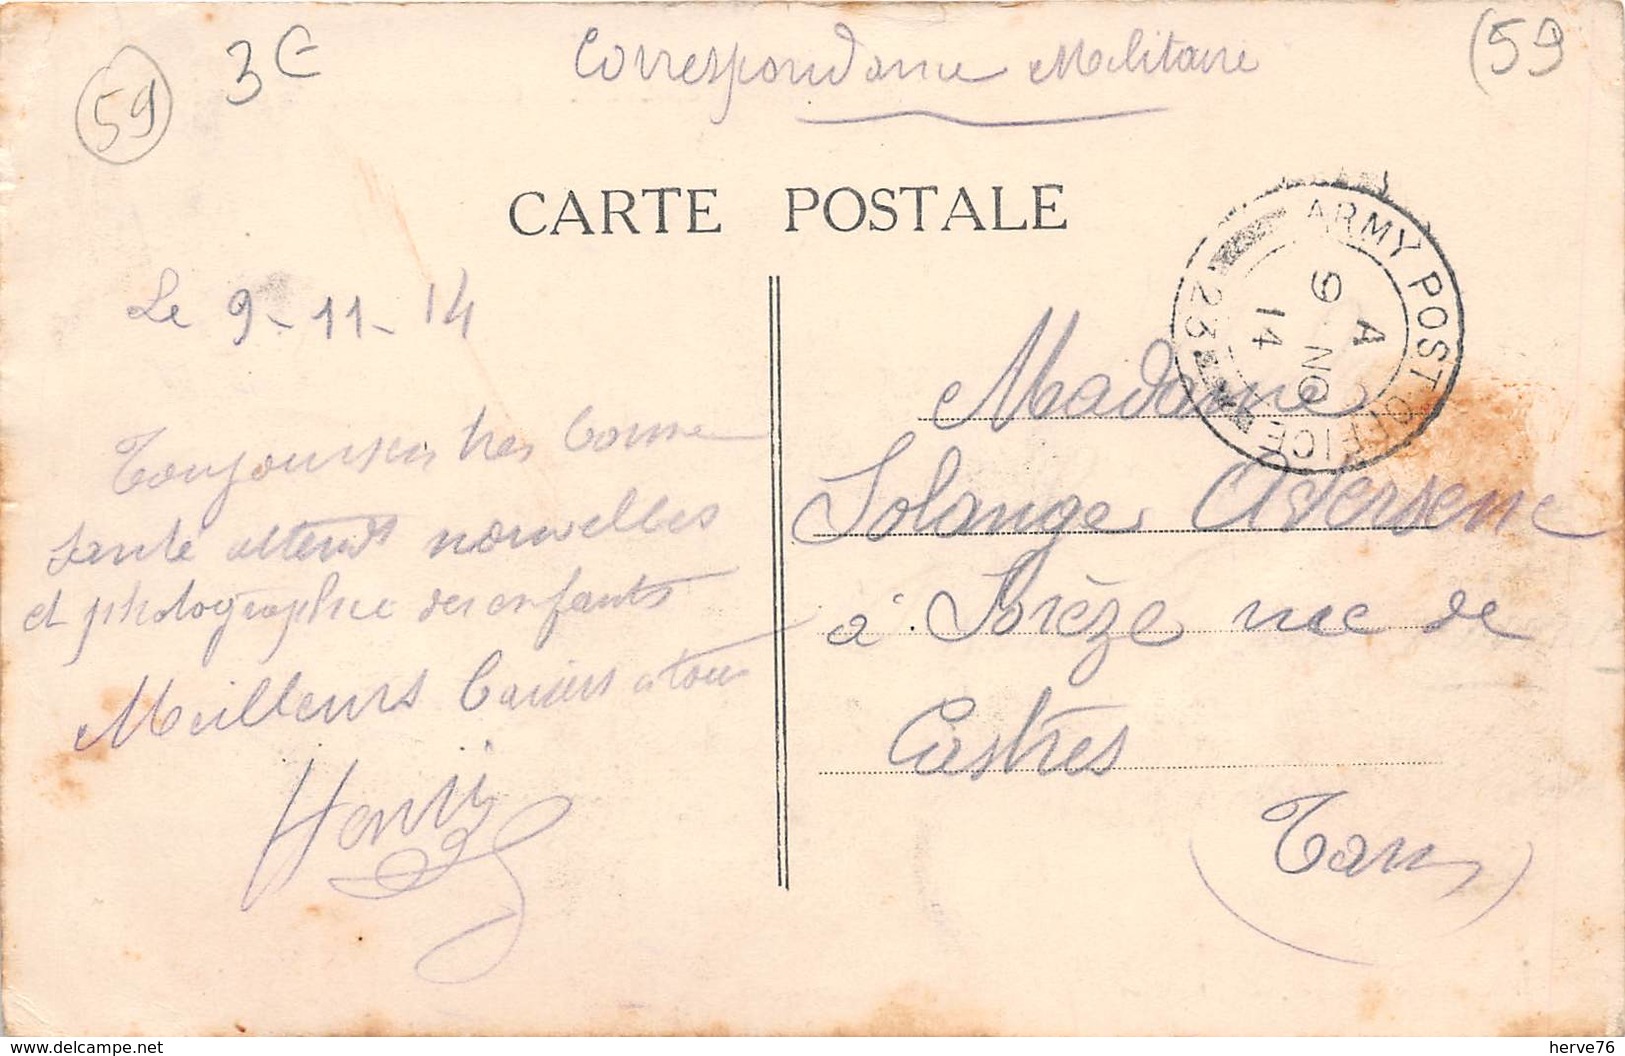 59
3€
Correspondance Militaire
(59
CARTE POSTALE
ARMY POST OFFICE
9 A
NO
14
23
Le 9-11-14
Toujours en tres bonne
santé attends nouvelles
et photographie des enfants
Meilleurs baisers a tous
Henri
Madame
Solange
à Sorèze rue de
Castres
(Tarn)
www.delcampe.net
herve76